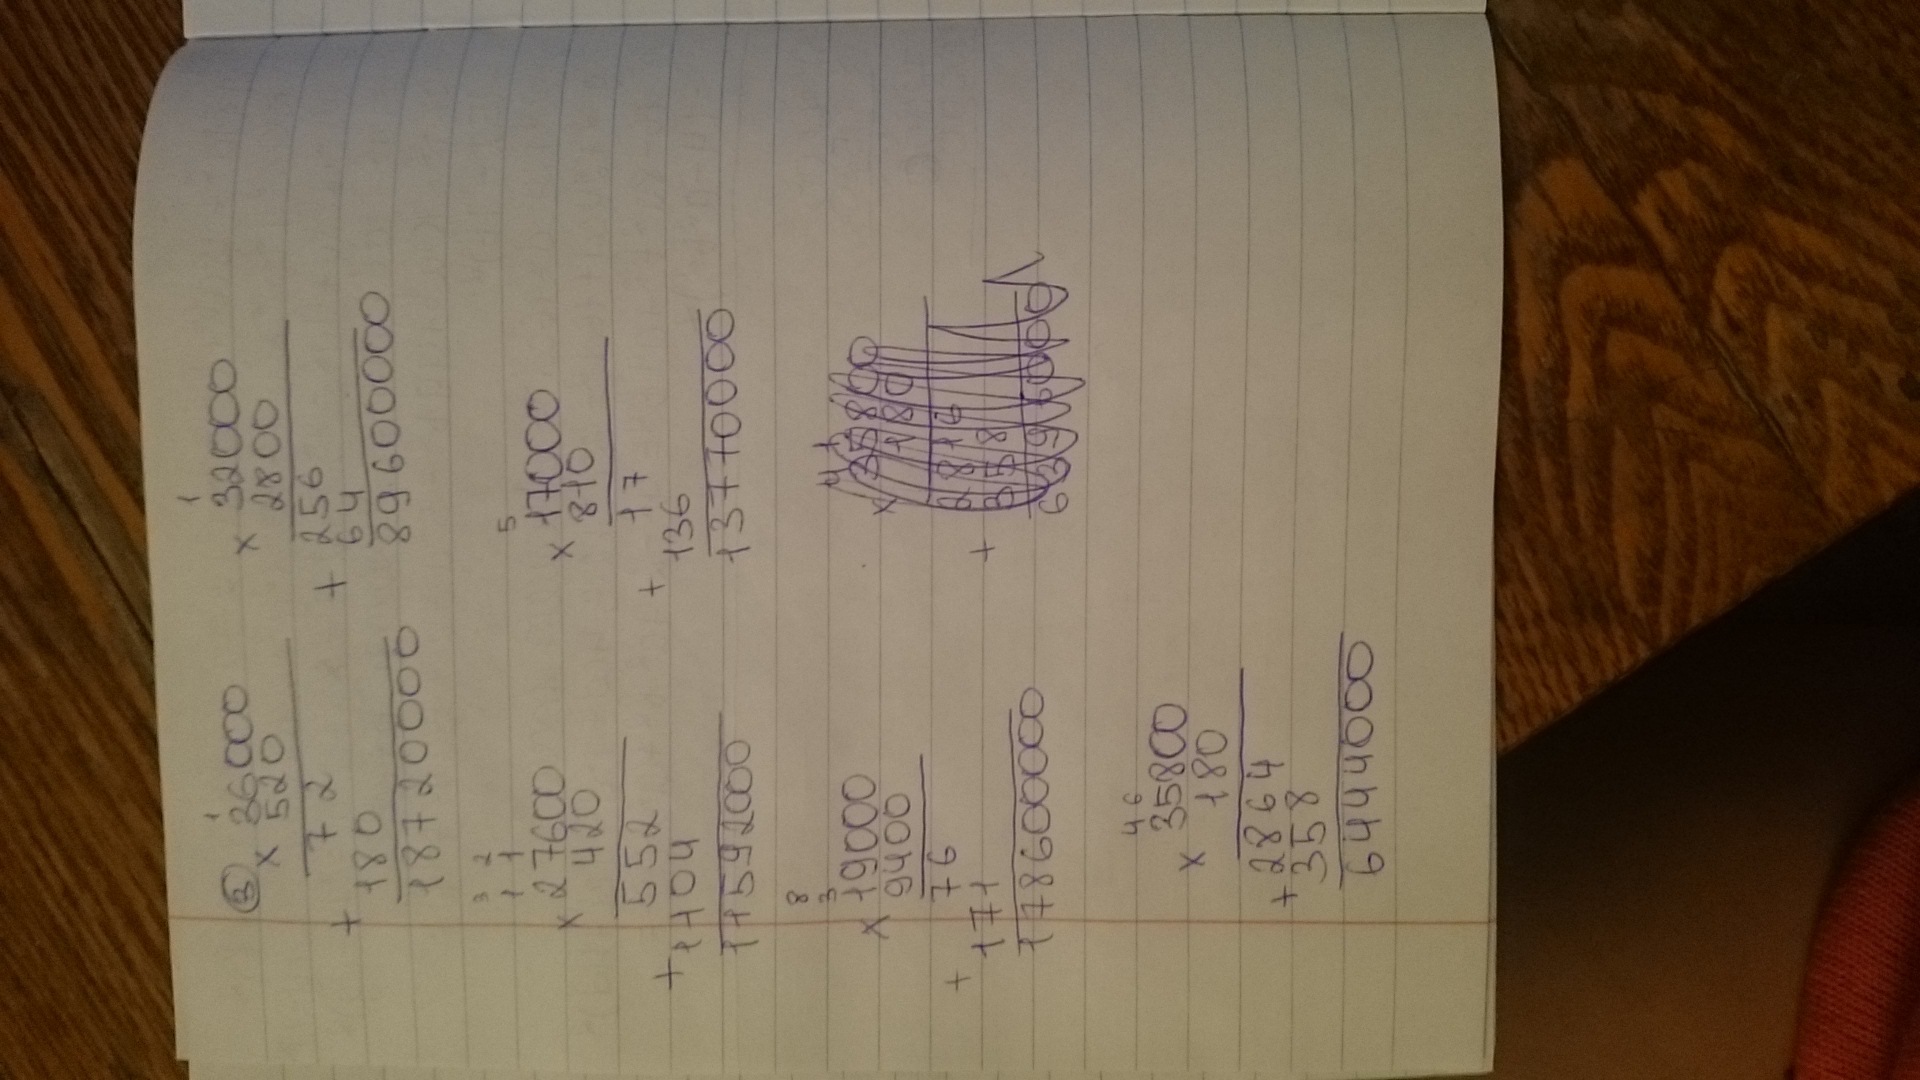 ③ 36000 × 520
1
72
+ 180
18720000
1
× 32000
2800
256
+ 64
89600000
3 2
1 1
× 27600
420
552
+ 1104
11592000
5
× 17000
810
17
+ 136
13770000
8
3
× 19000
9400
76
+ 171
178600000
× 35800
180
2816
+ 358
4 6
× 35800
180
+ 2864
358
6444000